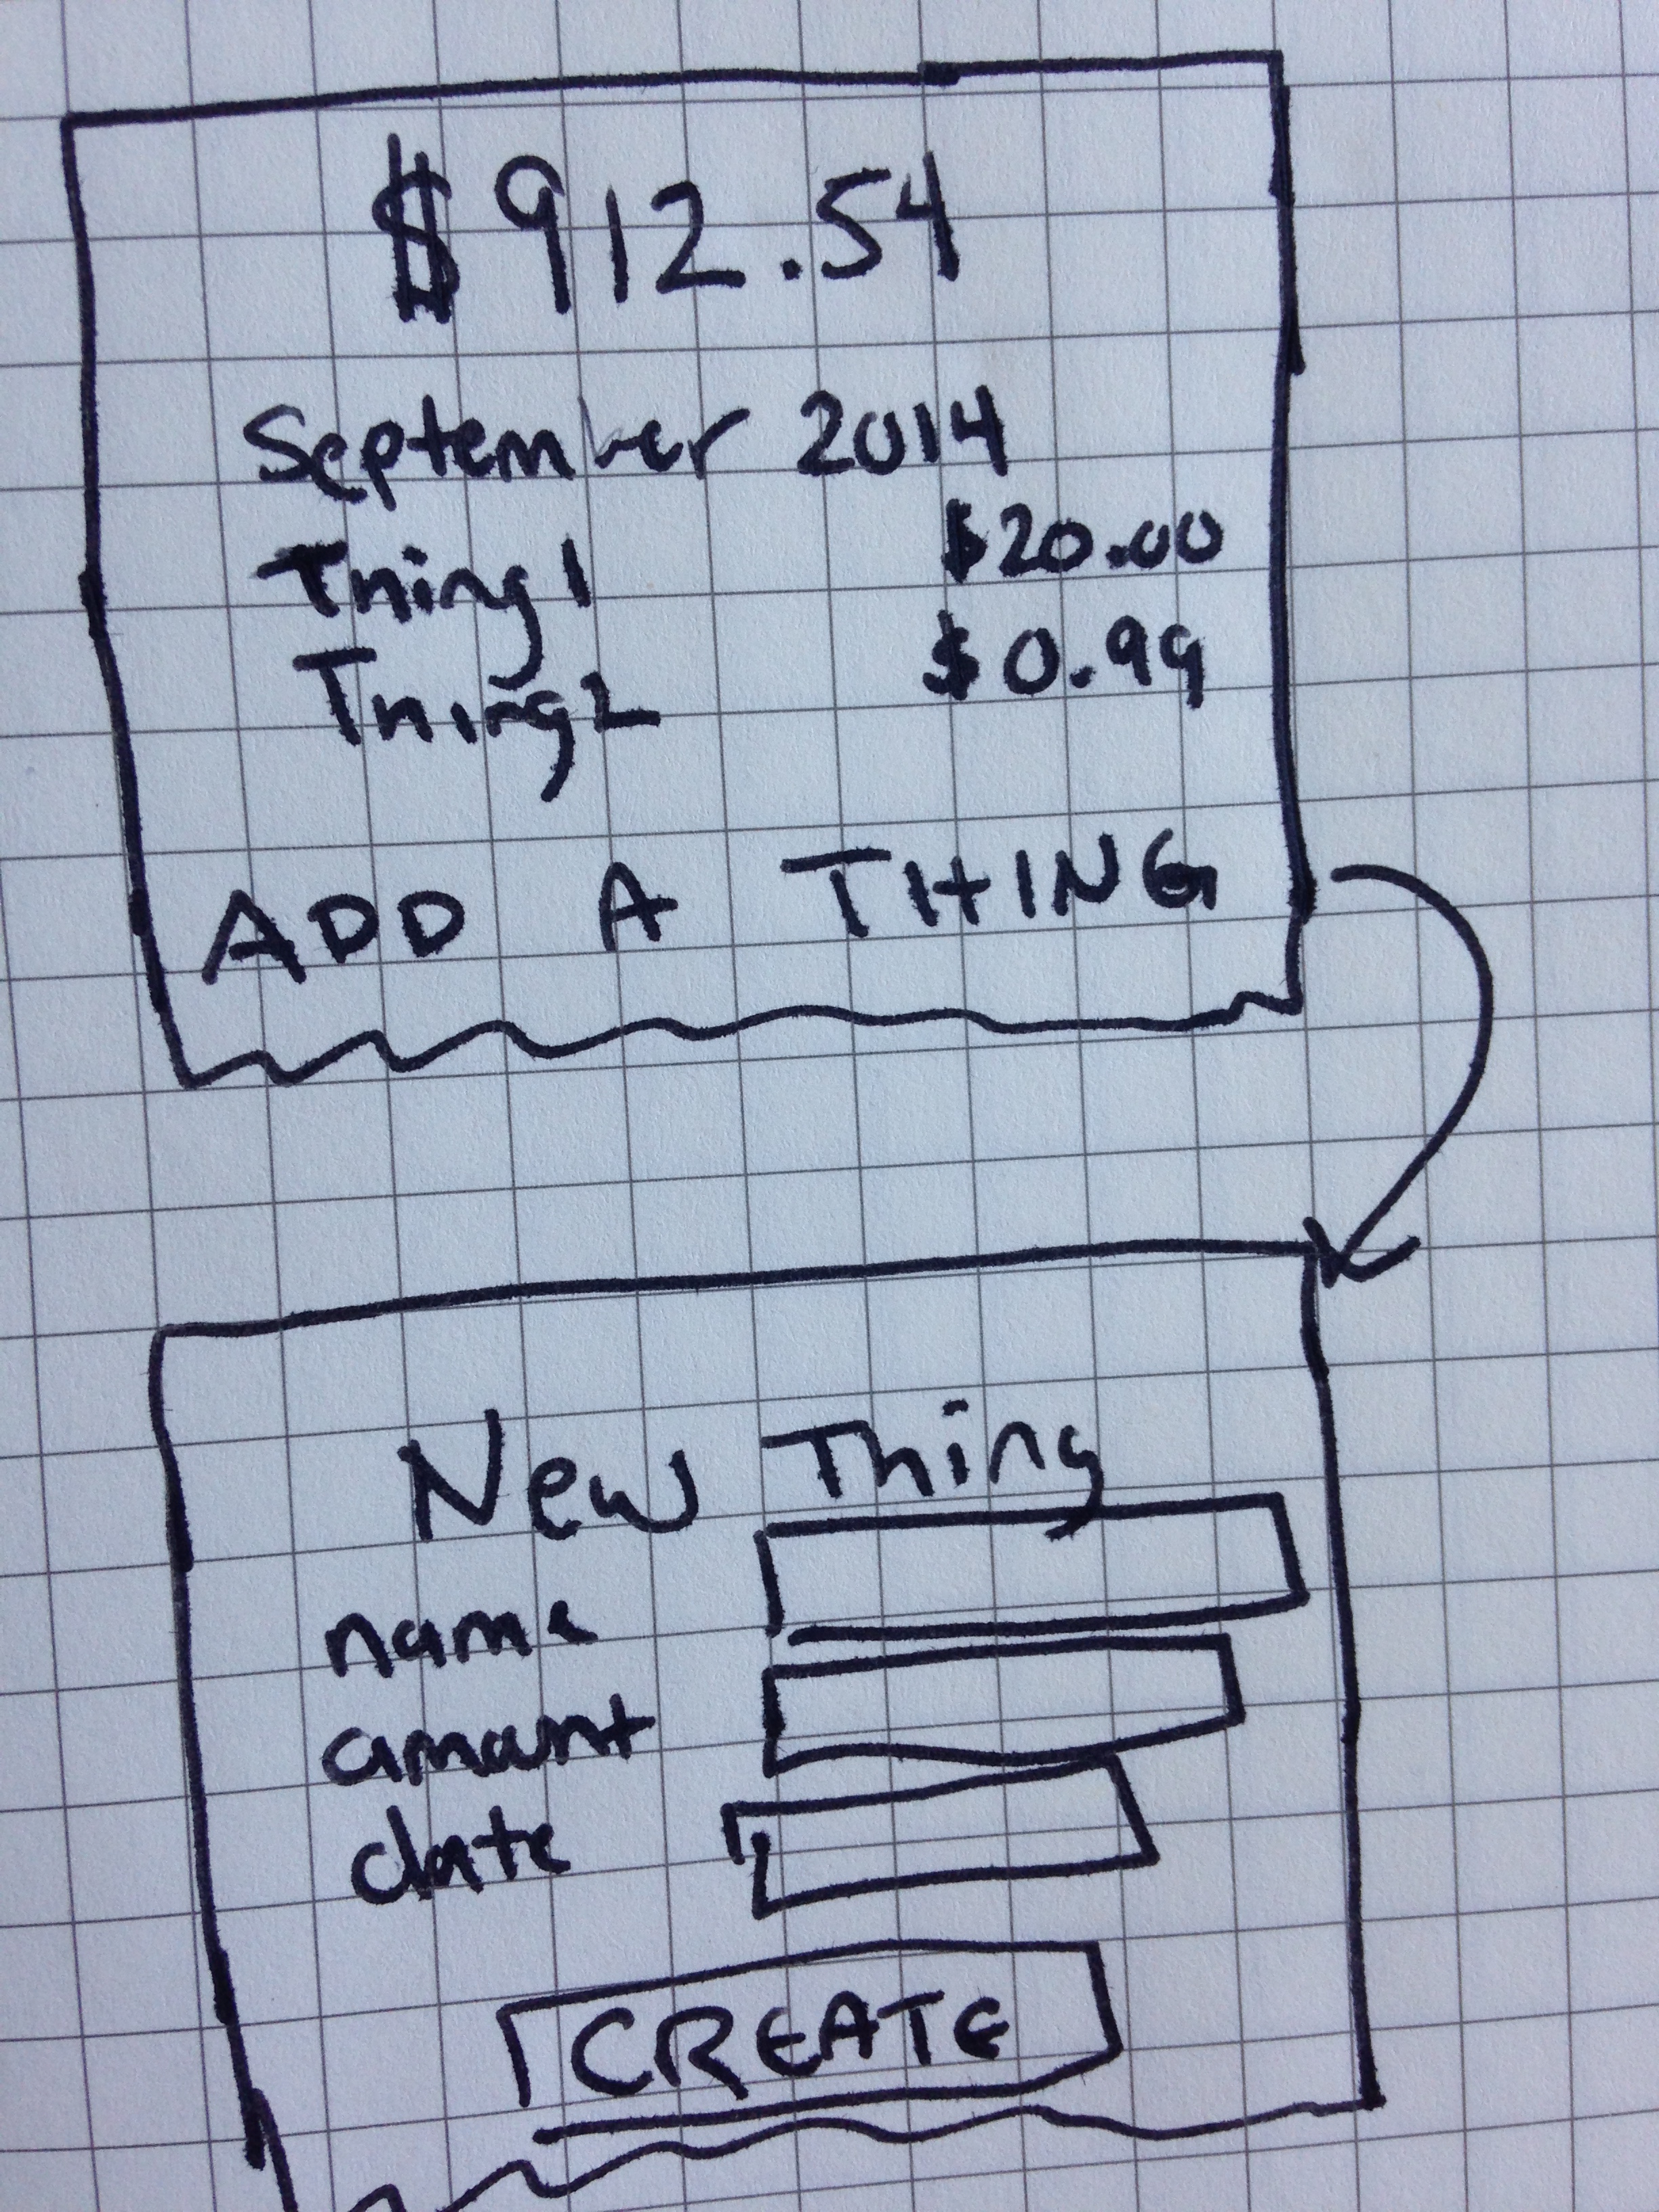 $912.54
September 2014
Thing1 $20.00
Thing2 $0.99
ADD A THING
New Thing
name
amount
date
CREATE